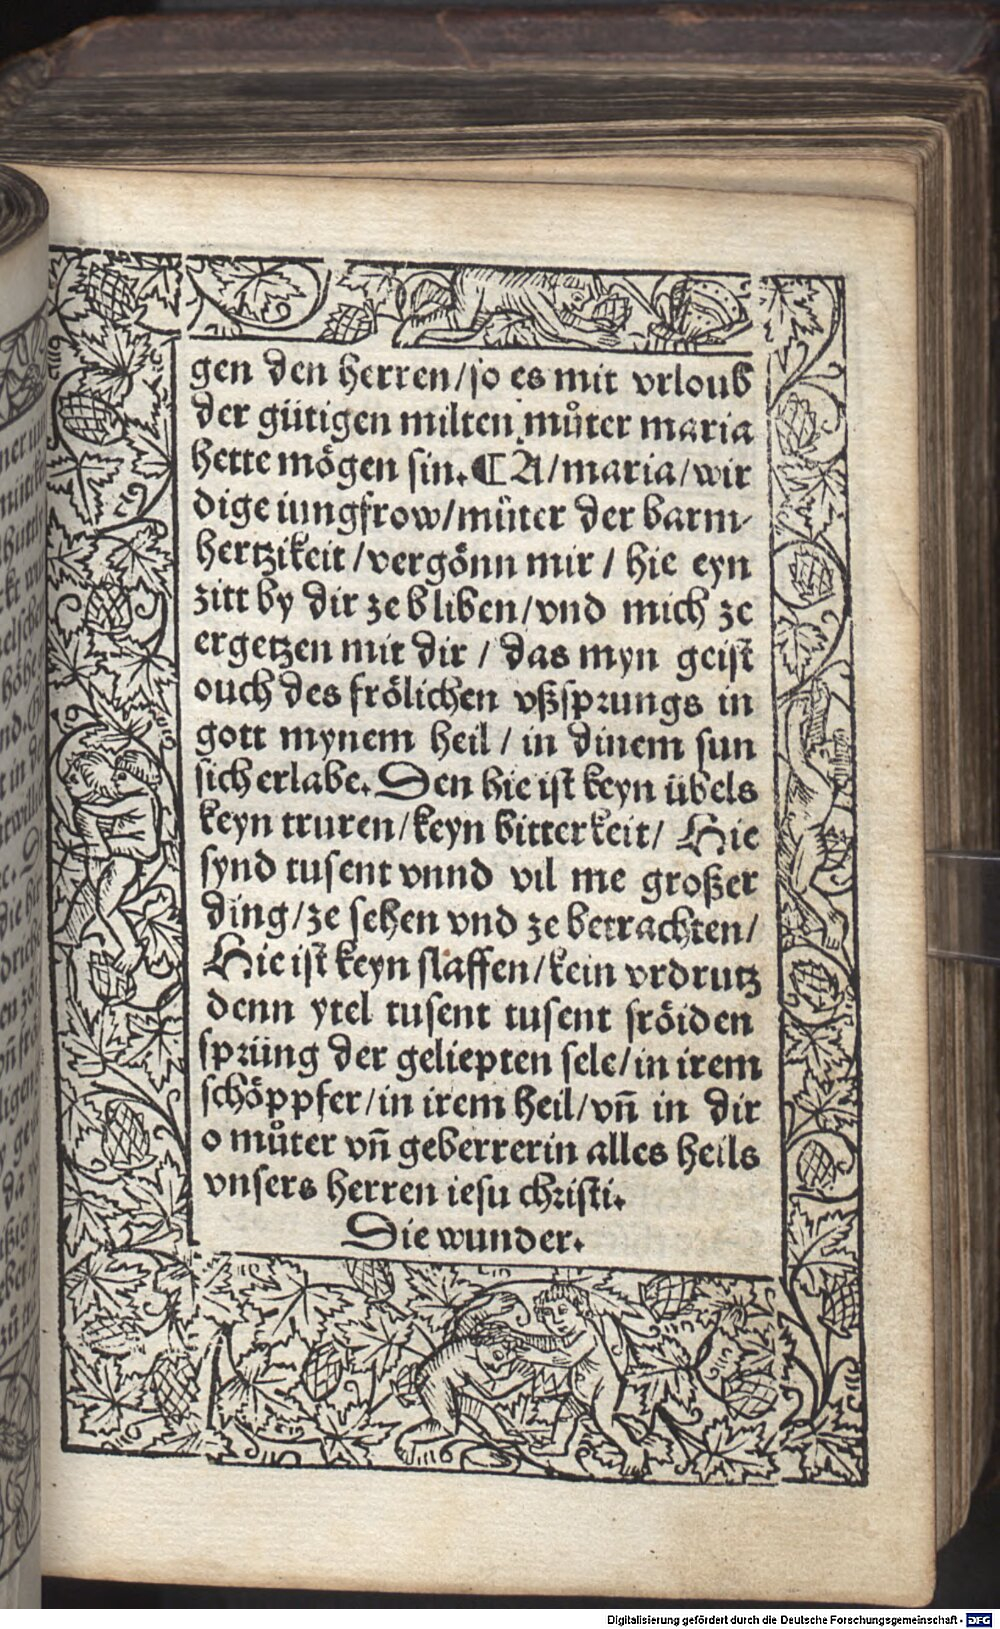 gen den herren/so es mit vrloub
der gütigen milten muͦter maria
hette mögen sin. ¶ A/maria/wir
dige iungfrow/müter der barm⸗
hertzikeit/vergönn mir/ hie eyn
zitt by dir ze bliben/vnd mich ze
ergetzen mit dir / das myn geist
ouch des frölichen vßsprungs in
gott mynem heil / in dinem sun
sich erlabe. Den hie ist keyn übels
keyn truren/keyn bitterkeit/ Hie
synd tusent vnnd vil me großer
ding/ze sehen vnd ze betrachten/
Hie ist keyn slaffen/kein vrdrutz
denn ytel tusent tusent fröiden
sprüng der geliepten sele/in irem
schöppfer/in irem heil/vn̄ in dir
o muͦter vn̄ geberrerin alles heils
vnsers herren iesu christi.
Die wunder.
Digitalisierung gefördert durch die Deutsche Forschungsgemeinschaft - DFG